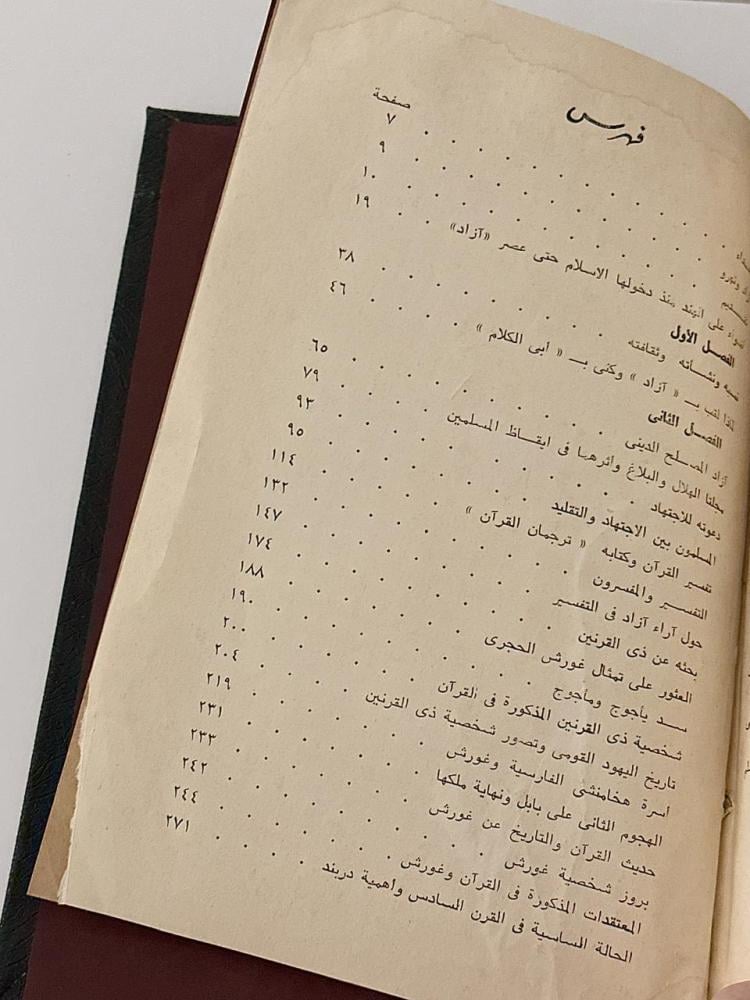 فهرس
صفحة
٧
٩
١٠
على الهند منذ دخولها الاسلام حتى عصر «آزاد» ١٩
الفصل الأول
ونشأته وثقافته ٣٨
لماذا لقب بـ « آزاد » وكنى بـ « أبى الكلام » ٤٦
الفصل الثانى
آزاد المصلح الدينى ٦٥
مجلتا الهلال والبلاغ وأثرهما فى ايقاظ المسلمين ٧٩
دعوته للاجتهاد ٩٣
المسلمون بين الاجتهاد والتقليد ٩٥
تفسير القرآن وكتابه « ترجمان القرآن » ١١٤
التفسير والمفسرون ١٣٢
حول آراء آزاد فى التفسير ١٤٧
بحثه عن ذى القرنين ١٧٤
العثور على تمثال غورش الحجرى ١٨٨
سد يأجوج ومأجوج ١٩٠
شخصية ذى القرنين المذكورة فى القرآن ٢٠٠
تاريخ اليهود القومى وتصور شخصية ذى القرنين ٢٠٤
أسرة هخامنشى الفارسية وغورش ٢١٩
الهجوم الثانى على بابل ونهاية ملكها ٢٣١
حديث القرآن والتاريخ عن غورش ٢٣٣
بروز شخصية غورش ٢٤٢
المعتقدات المذكورة فى القرآن وغورش ٢٤٤
الحالة السياسية فى القرن السادس وأهمية دربند ٢٧١